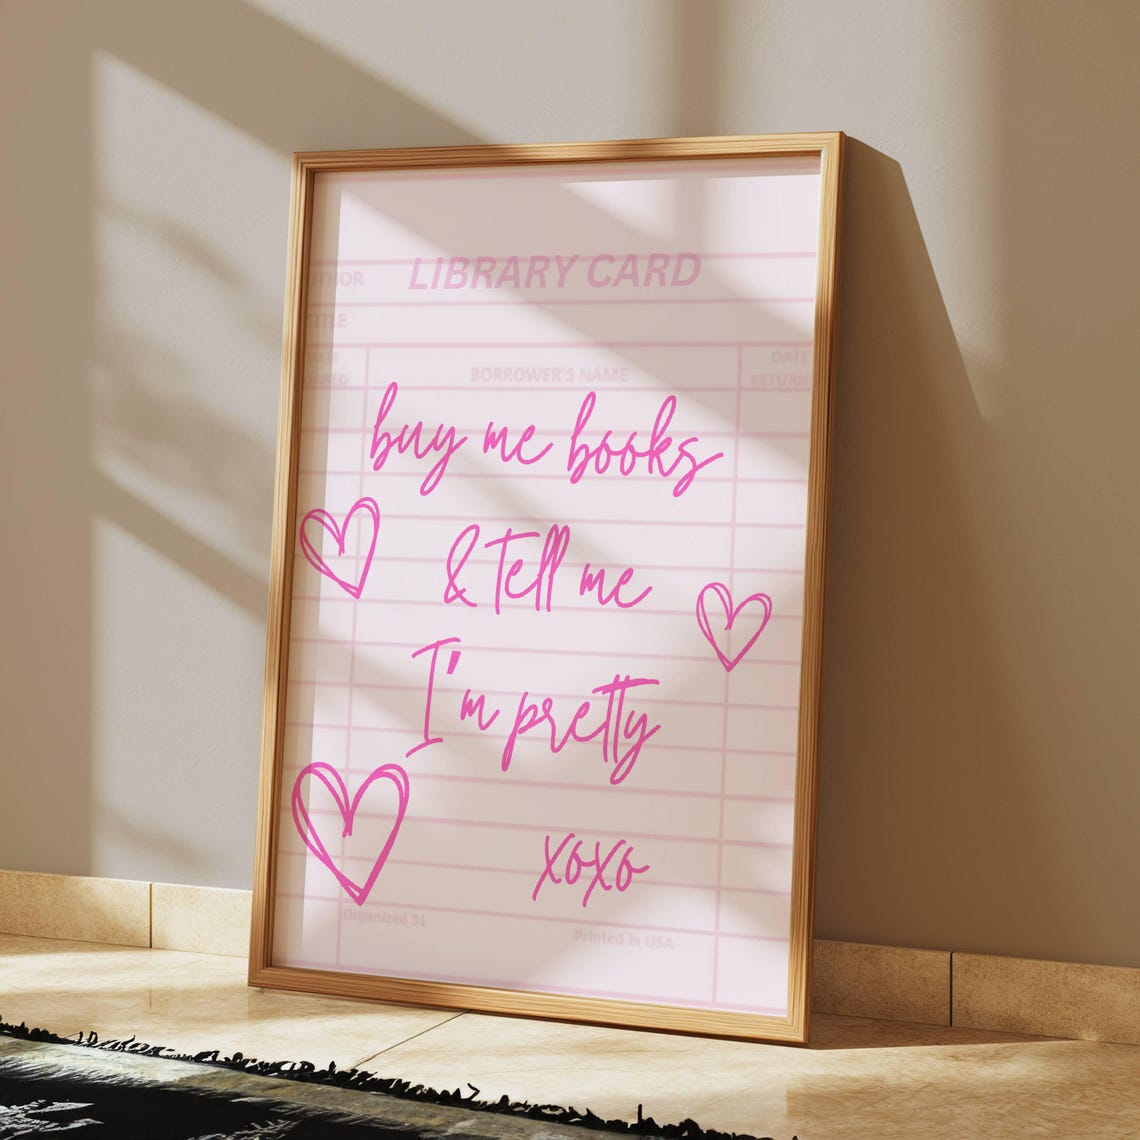 LIBRARY CARD
THOR
TITLE
DATE
BORROWER'S NAME
DATE
RETURN
buy me books
& tell me
I'm pretty
xoxo
Organized 31
Printed in USA